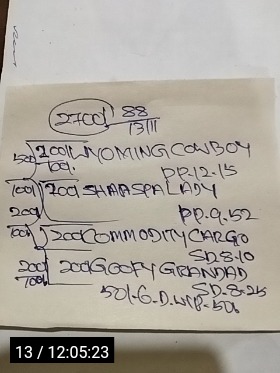 2700/ 88
13111
500/ 200/ WYOMING COWBOY
100/.
PP.12-15
100/ 200/ SHAASPA LADY
200/
PP.9.52
100/ 200 COMMODITY CARGO
SD.8-10
200/ 200/ GOOFY GRANDAD
700/ SD.8-25
50/-G.D.WIP-506
13 / 12:05:23